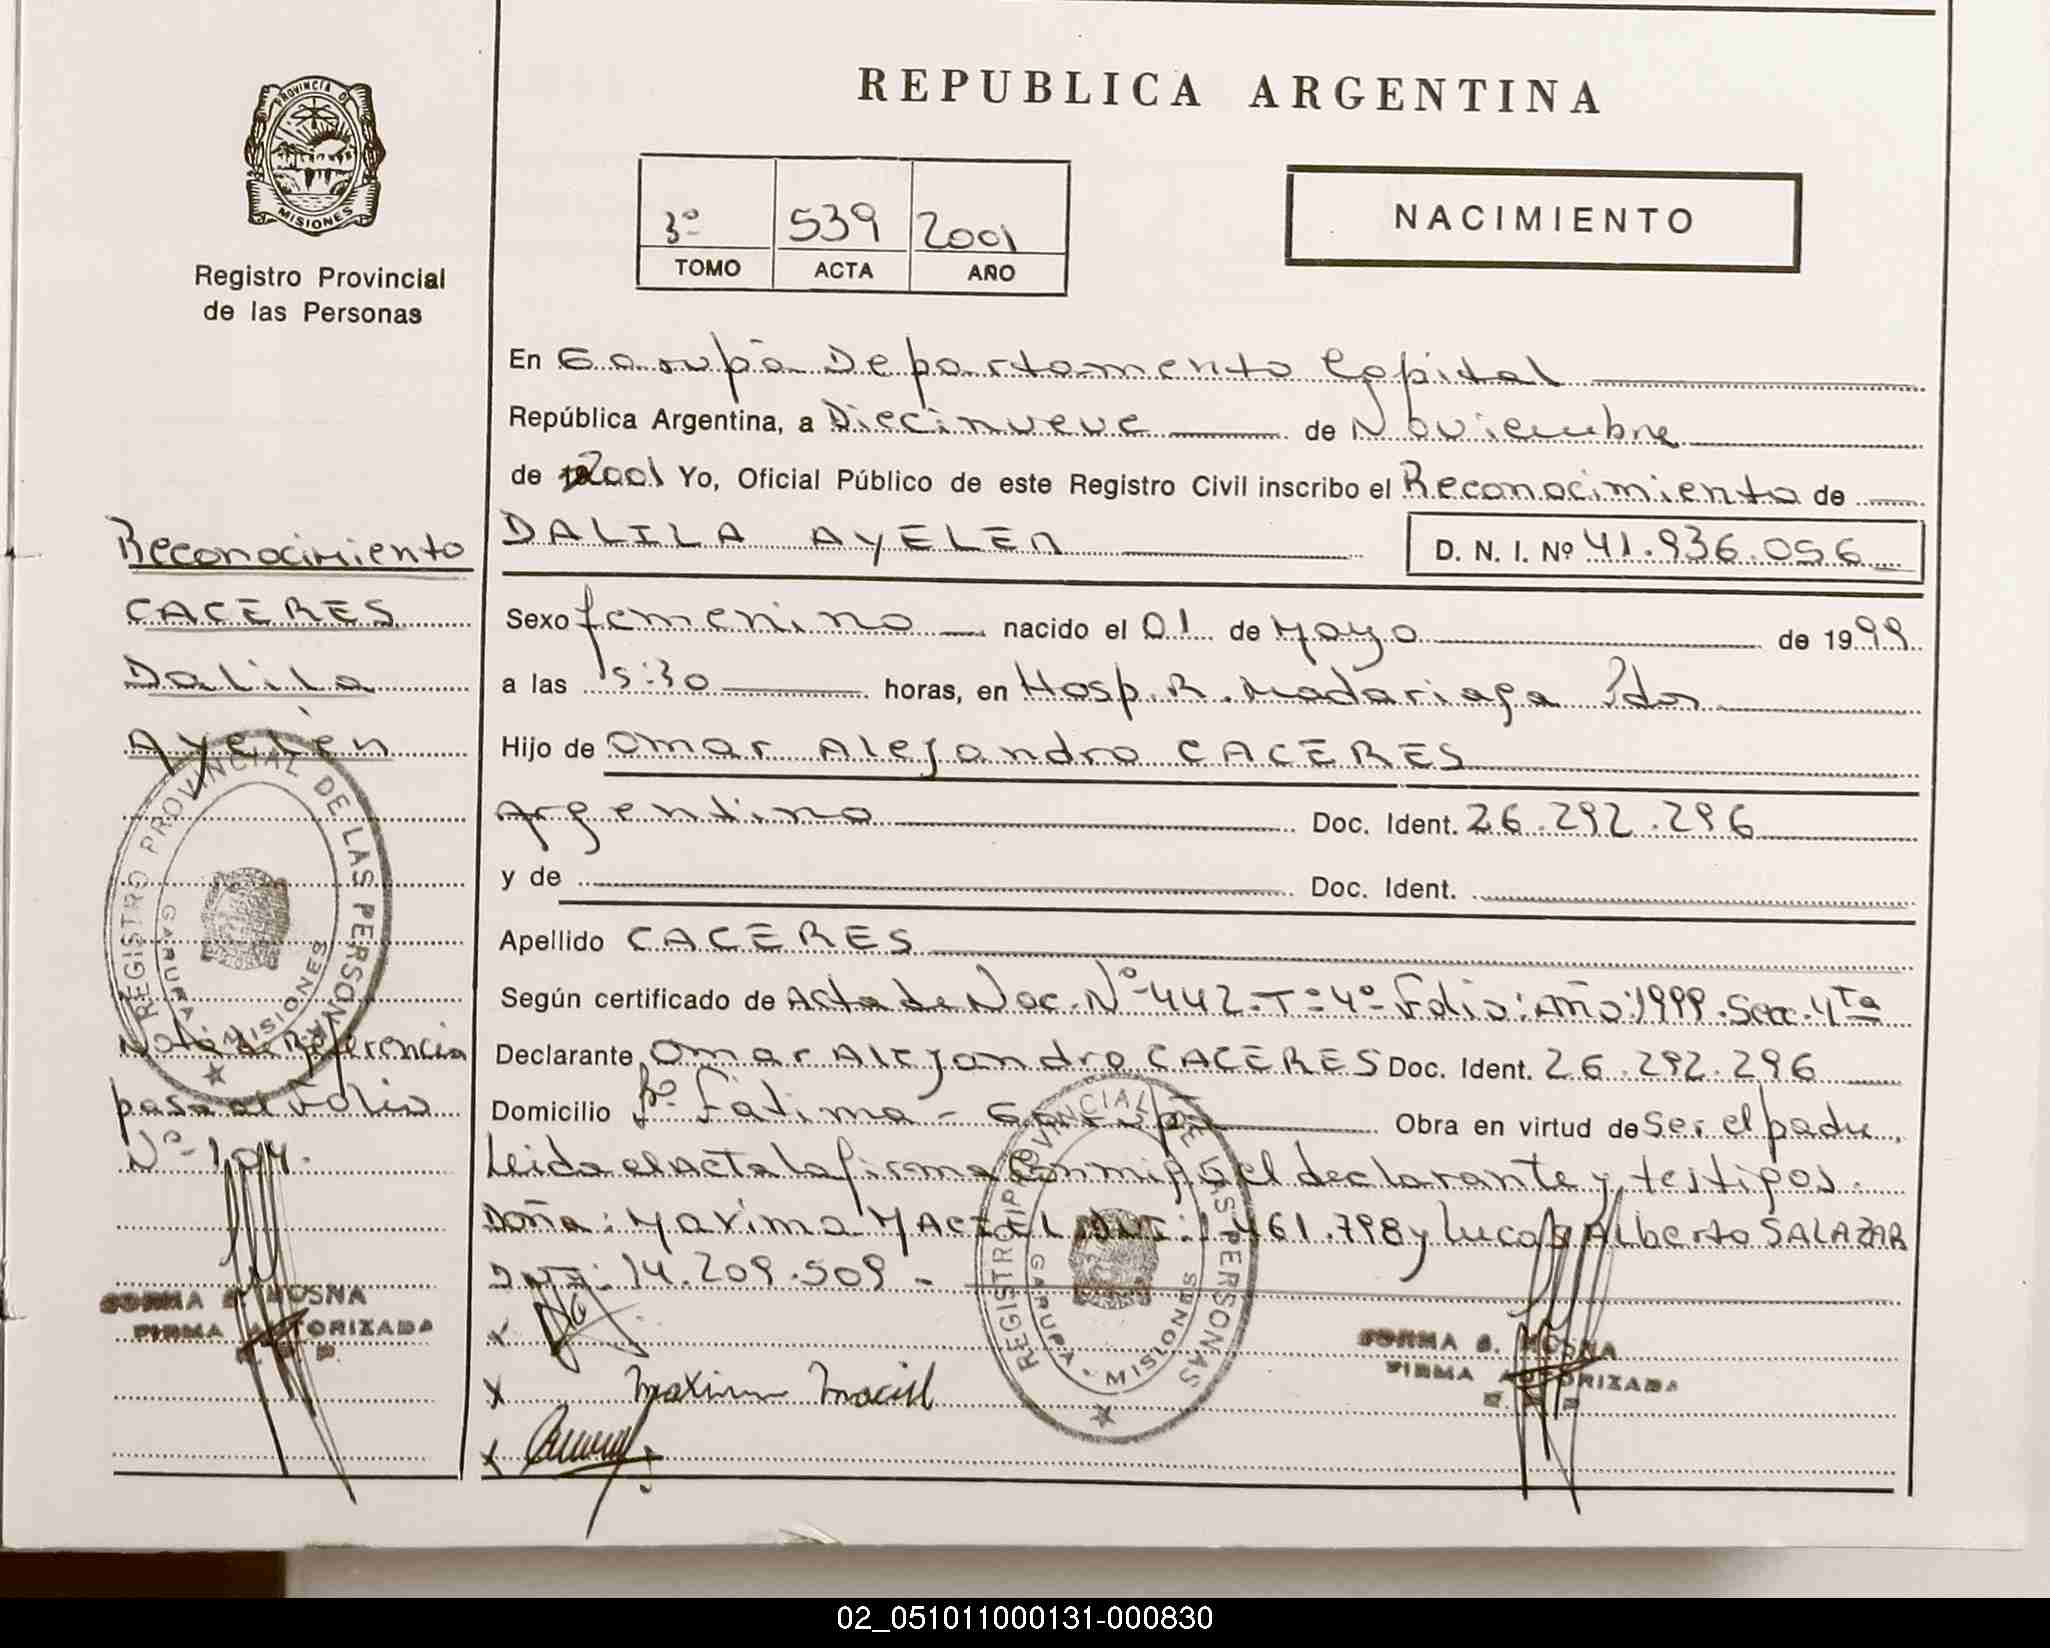 REPUBLICA ARGENTINA
PROVINCIA DE
MISIONES
Registro Provincial
de las Personas
3º 539 2001
TOMO ACTA AÑO
NACIMIENTO
En Garupá Departamento Capital
República Argentina, a Diecinueve de Noviembre
de 2001 Yo, Oficial Público de este Registro Civil inscribo el Reconocimiento de
DALILA AYELEN D. N. I. Nº 41.936.056
Sexo femenino nacido el 01 de Mayo de 1999
a las 5:30 horas, en Hosp. R. Madariaga Pdas
Hijo de Omar Alejandro CACERES
Argentino Doc. Ident. 26.292.296
y de Doc. Ident.
Apellido CACERES
Según certificado de Acta de Nac. Nº 442. Tº 4º Folio: Año: 1999. Secc. 4ta
Declarante Omar Alejandro CACERES Doc. Ident. 26.292.296
Domicilio Bº Fátima - Garupá Obra en virtud de Ser el padre.
Leida el Acta la firma conmigo el declarante y testigos.
Doña: Maxima MACIEL DNI: 461.798 y Lucas Alberto SALAZAR
DNI: 14.209.509 -
x
x Maxima Maciel
x
Reconocimiento
CACERES
Dalila
Ayelén
Nota de Referencia
pasa al Folio
Nº 104.
REGISTRO PROVINCIAL DE LAS PERSONAS
GARUPA - MISIONES
MOSNA
FIRMA AUTORIZADA
REGISTRO PROVINCIAL DE LAS PERSONAS
GARUPA - MISIONES
G. MOSNA
FIRMA AUTORIZADA
02_051011000131-000830